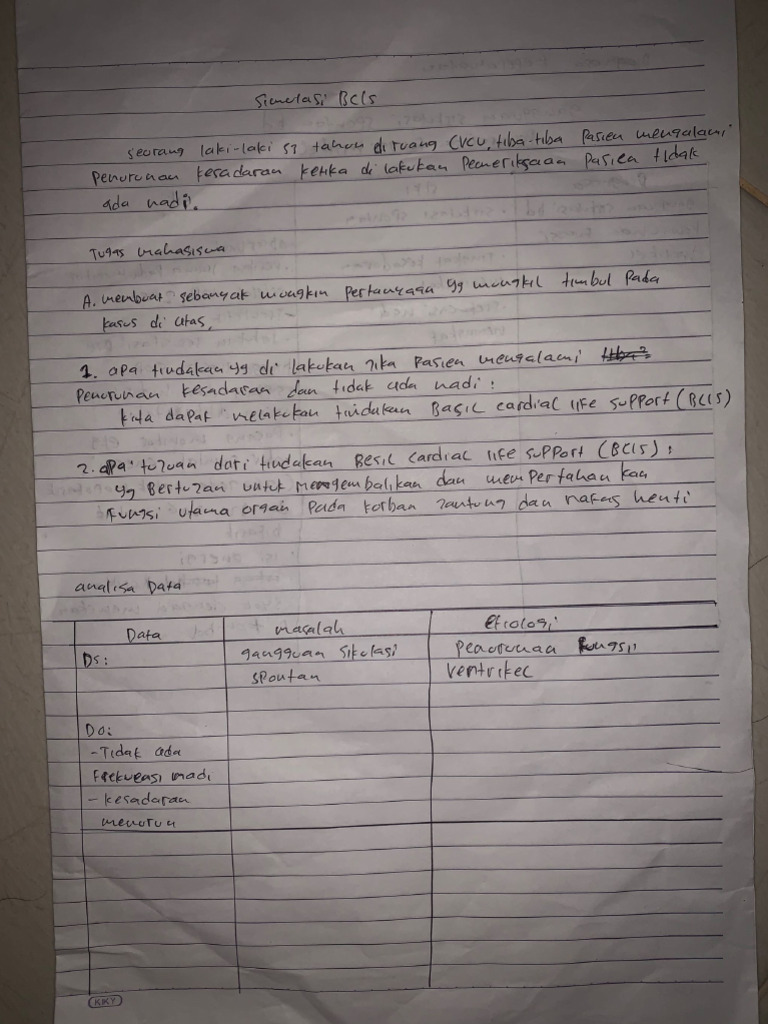 Simulasi BCLS
seorang laki-laki 57 tahun di ruang CVCU, tiba-tiba Pasien mengalami
Penurunan kesadaran ketika di lakukan Pemeriksaan Pasien tidak
ada nadi.
Tugas mahasiswa
A. membuat sebanyak mungkin Pertanyaan yg mungkil timbul Pada
kasus di atas,
1. apa tindakan yg di lakukan jika Pasien mengalami
Penurunan kesadaran dan tidak ada nadi :
kita dapat melakukan tindakan Basic cardial life support (BCLS)
2. apa tujuan dari tindakan Besic cardial life support (BCLS) :
yg Bertujan untuk mengembalikan dan memPertahan kan
Fungsi utama organ Pada korban jantung dan nafas henti
analisa Data
Data masalah Etiologi
Ds: gangguan sikulasi Penurunan Fungsi
spontan ventrikel
Do:
- Tidak ada
Frekuensi nadi
- kesadaran
menurun
KKY